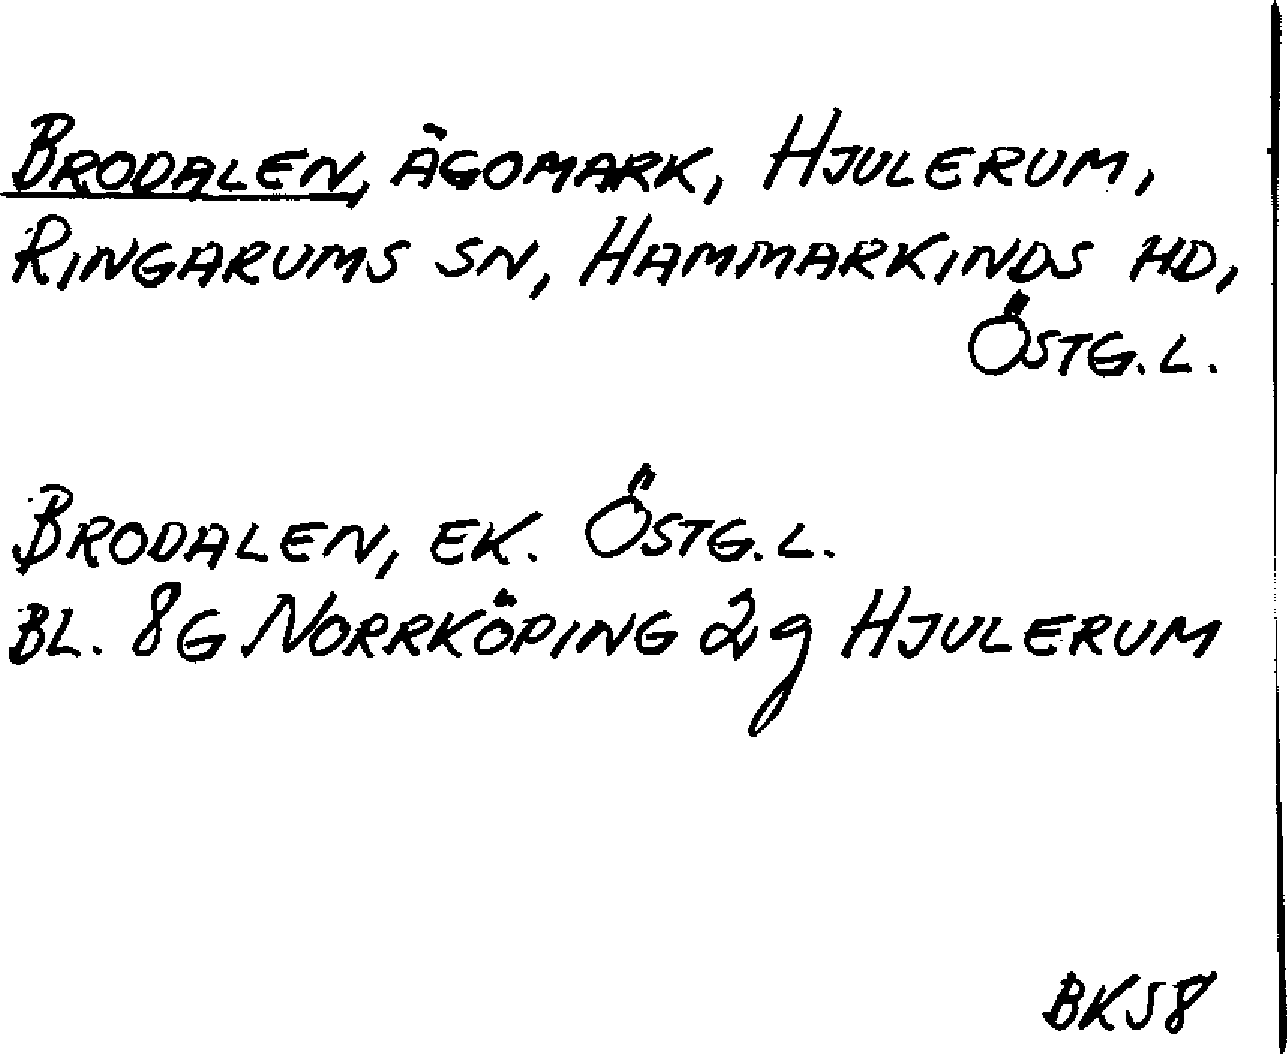 BRODALEN, ÄGOMARK, HJULERUM,
RINGARUMS SN, HAMMARKINDS HD,
ÖSTG. L.
BRODALEN, EK. ÖSTG. L.
BL. 8G NORRKÖPING 2g HJULERUM
BKS8